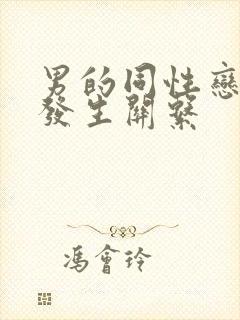 男的同性戀
發生關系
馮會玲